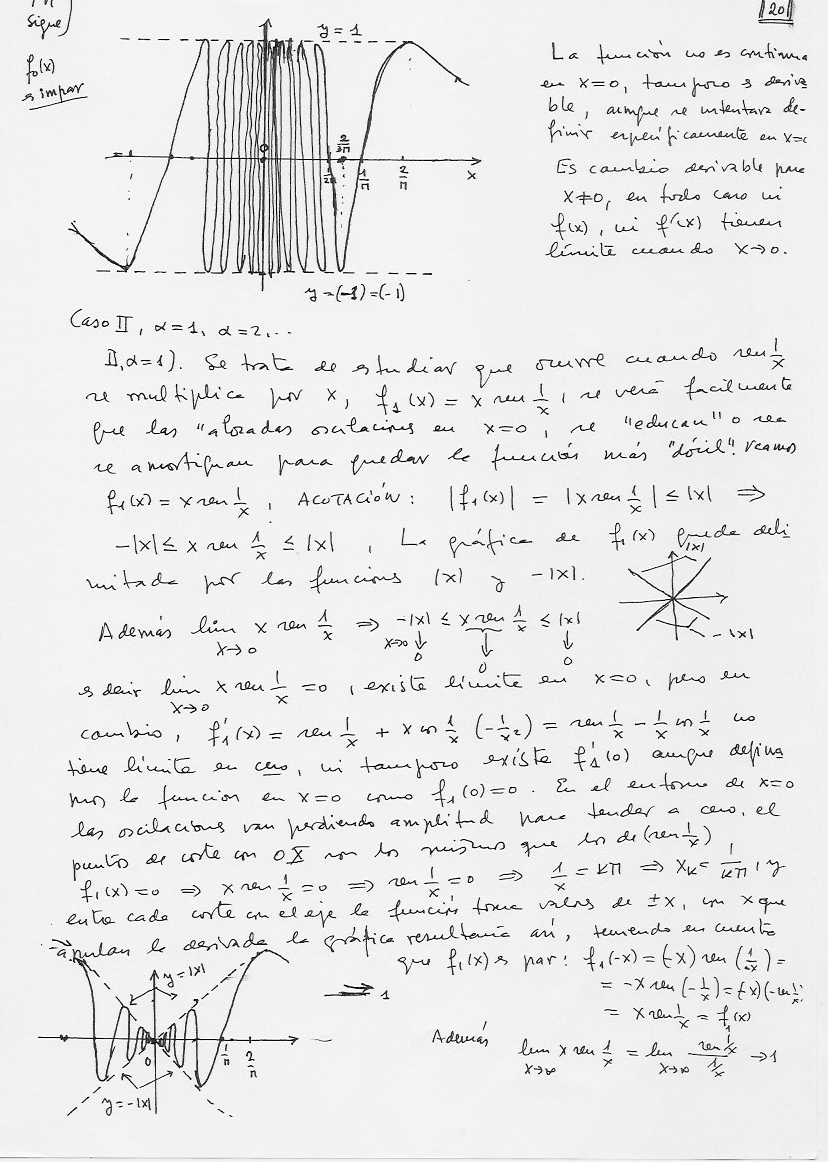 Sigue)
|20|
f₀(x)
es impar
y = 1
0
1/2π
2/3π
1/π
2/π
x
y = (-1) = (-1)
La función no es continua
en x=0, tampoco es deriva
ble, aunque se intentara de-
finir específicamente en x=0
Es cambio derivable para
x≠0, en todo caso ni
f(x), ni f'(x) tienen
límite cuando x→0.
Caso II, α=1, α=2,..
II,α=1). Se trata de estudiar que ocurre cuando sen 1/x
se multiplica por x, f₁(x) = x sen 1/x, se verá facilmente
que las "alocadas oscilaciones en x=0, se "educan" o sea
se amortiguan para quedar la función más "dócil". Veamos
f₁(x) = x sen 1/x, ACOTACIÓN: |f₁(x)| = |x sen 1/x| ≤ |x| ⇒
-|x| ≤ x sen 1/x ≤ |x|, La gráfica de f₁(x) queda deli
mitada por las funciones |x| y -|x|.
|x|
-|x|
Además lim x→0 x sen 1/x ⇒ -|x| ≤ x sen 1/x ≤ |x|
x→0 ↓ 0 ↓ 0 ↓ 0
es decir lim x→0 x sen 1/x = 0, existe límite en x=0, pero en
cambio, f₁'(x) = sen 1/x + x cos 1/x (-1/x²) = sen 1/x - 1/x cos 1/x no
tiene límite en cero, ni tampoco existe f₁'(0) aunque defina
mos la funcion en x=0 como f₁(0)=0. En el entorno de x=0
las oscilaciones van perdiendo amplitud para tender a cero, el
puntos de corte con OX son los mismos que los de (sen 1/x)
f₁(x) = 0 ⇒ x sen 1/x = 0 ⇒ sen 1/x = 0 ⇒ 1/x = kπ ⇒ xₖ = 1/kπ, y
entre cada corte con el eje la función toma valores de ±x, con x que
anulan la derivada la gráfica resultaría así, teniendo en cuenta
que f₁(x) es par: f₁(-x) = (-x) sen (1/-x) =
= -x sen (-1/x) = (-x)(-sen 1/x)
= x sen 1/x = f₁(x)
y=|x|
→ 1
0
1/π
2/π
y=-|x|
Además lim x→∞ x sen 1/x = lim x→∞ sen 1/x / 1/x → 1